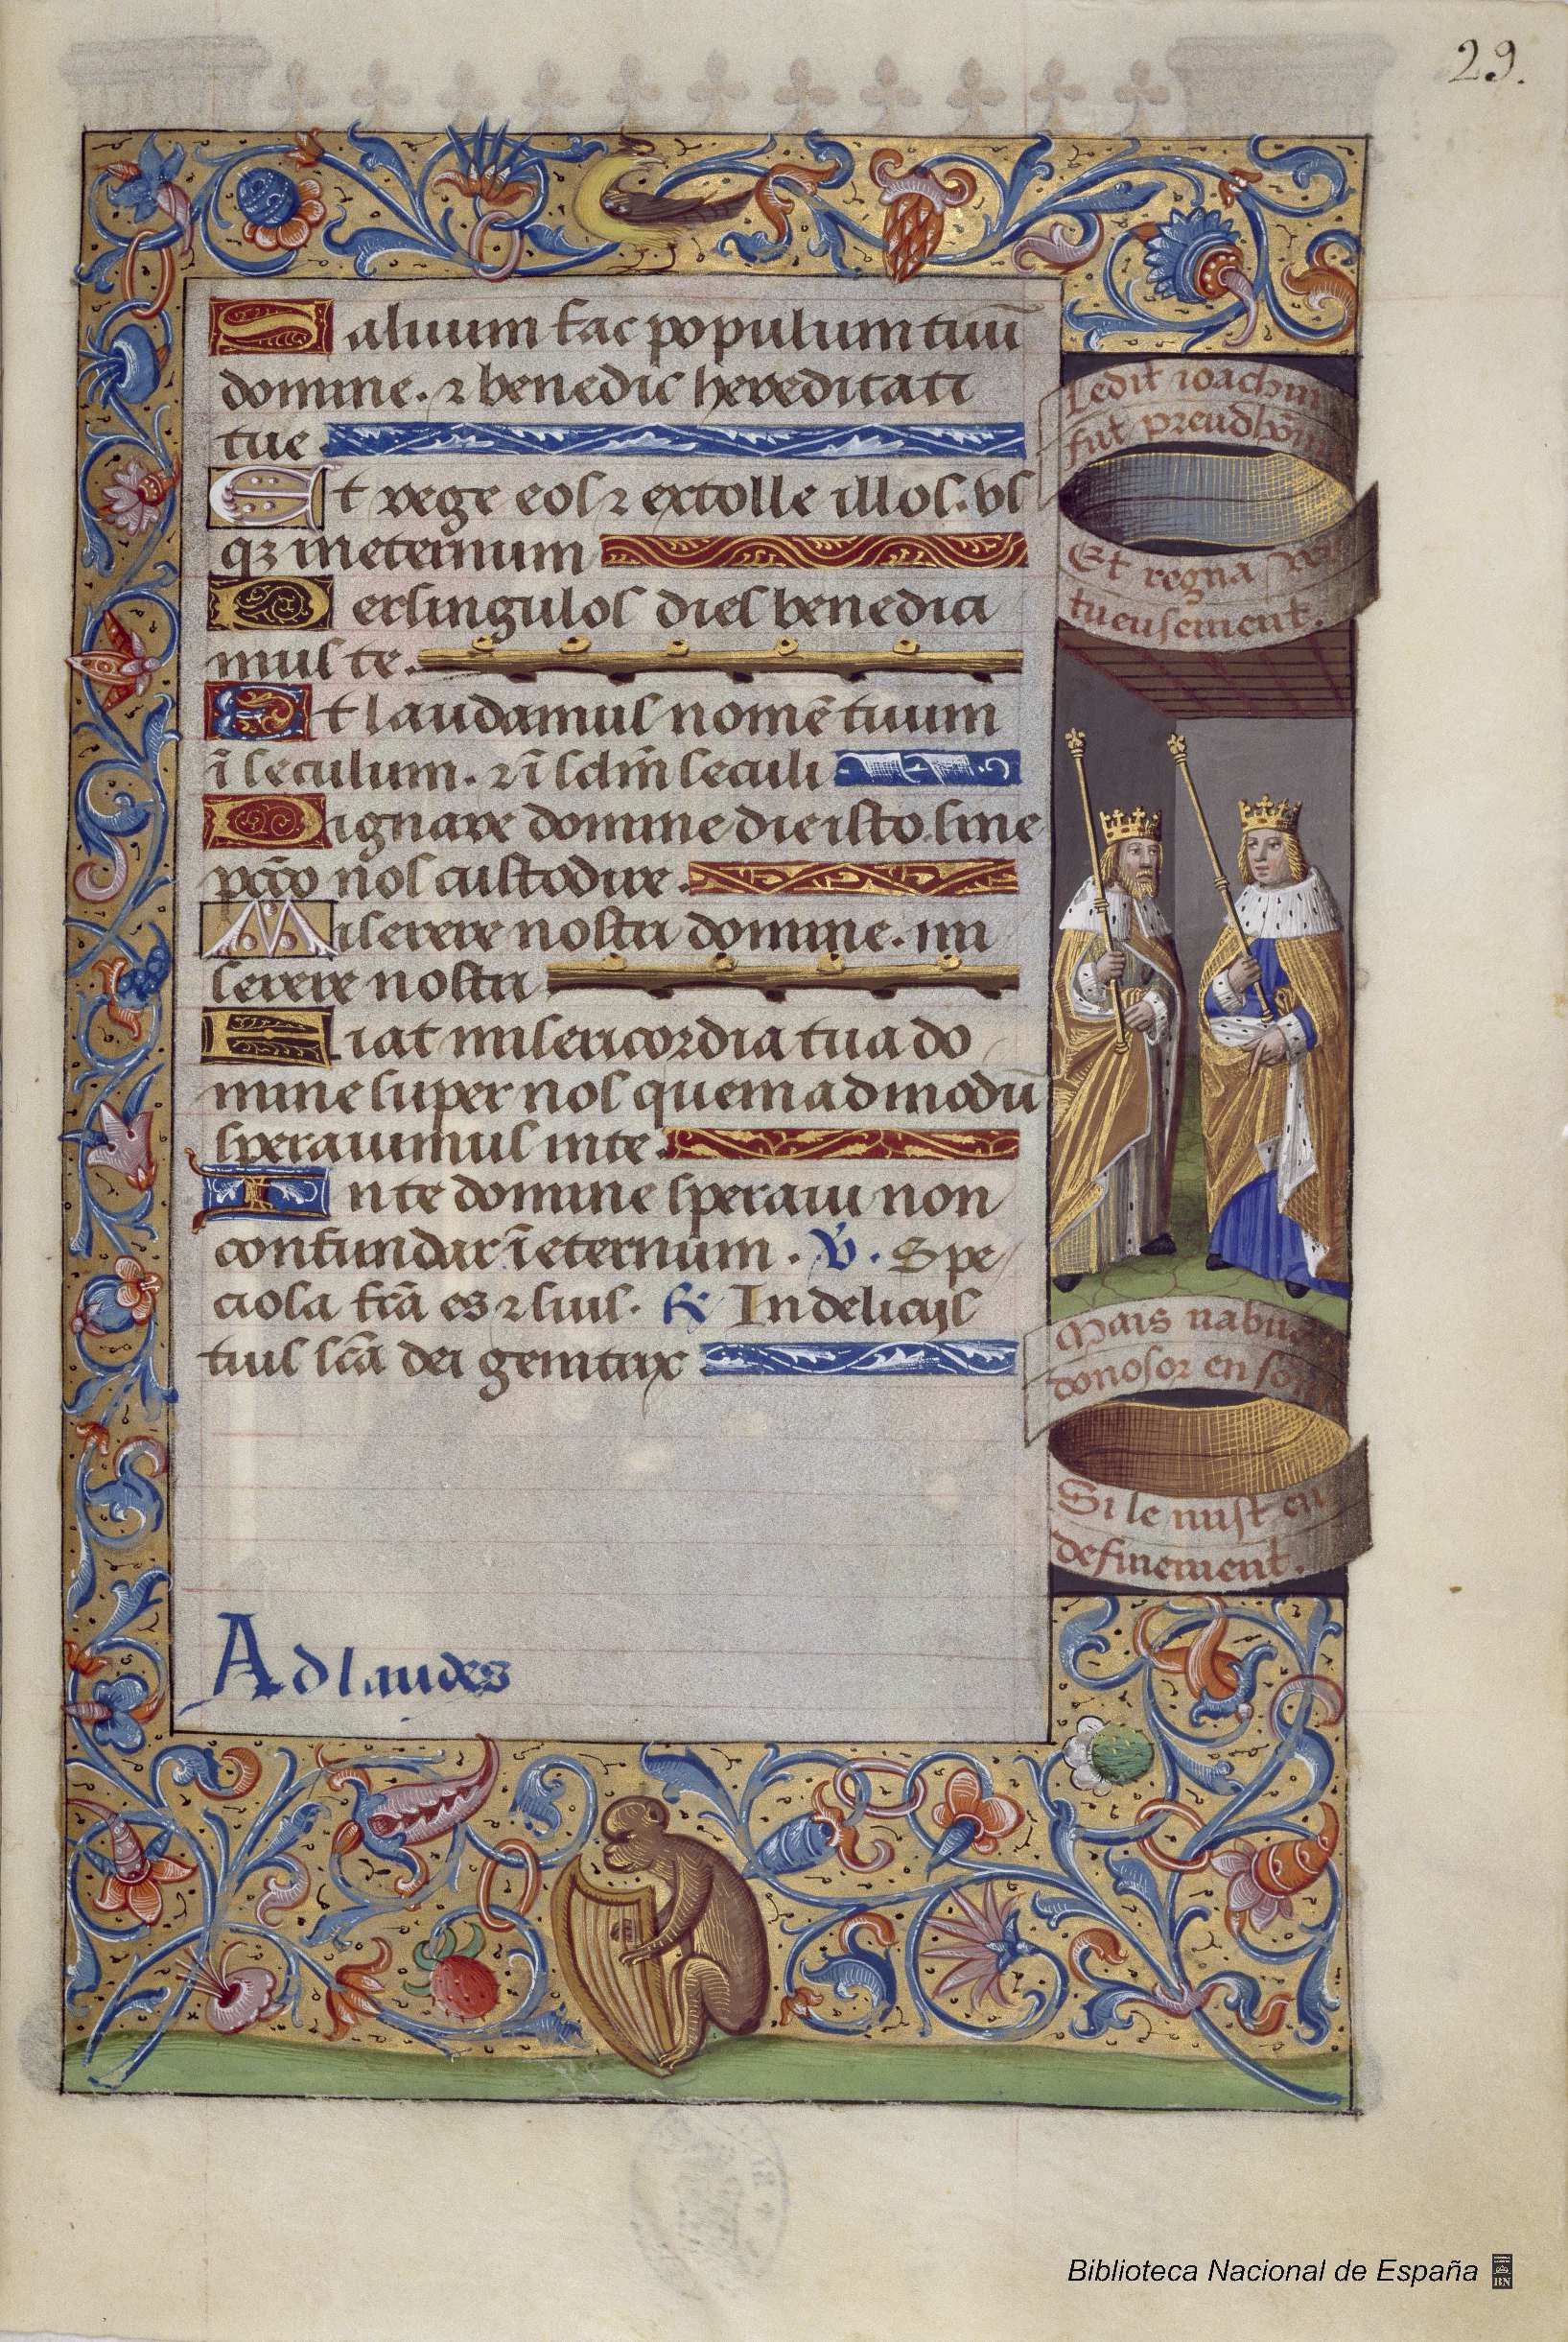 29.
Saluum fac populum tuū
domine. ⁊ benedic hereditati
tue
Et rege eos ⁊ extolle illos. vs
qꝫ in eternum
Per singulos dies benedici
mus te.
Et laudamus nomē tuum
ī seculum. ⁊ ī sclm̄ seculi
Dignare domine die isto sine
pctō nos custodire.
Miserere nostri domine. mi
serere nostri
Fiat misericordia tua do
mine super nos quemadmodū
sperauimus in te.
In te domine speraui non
confundar ī eternum. V̇. Spe
ciosa fcā es ⁊ suis. ℟ In delicijs
tuis scā dei genitrix
Ad laudes
Ledit ioachin
fut preudhōm
Et regna ver
tueusement.
Mais nabuc
donosor en so
Si le mist en
definement.
Biblioteca Nacional de España
BN